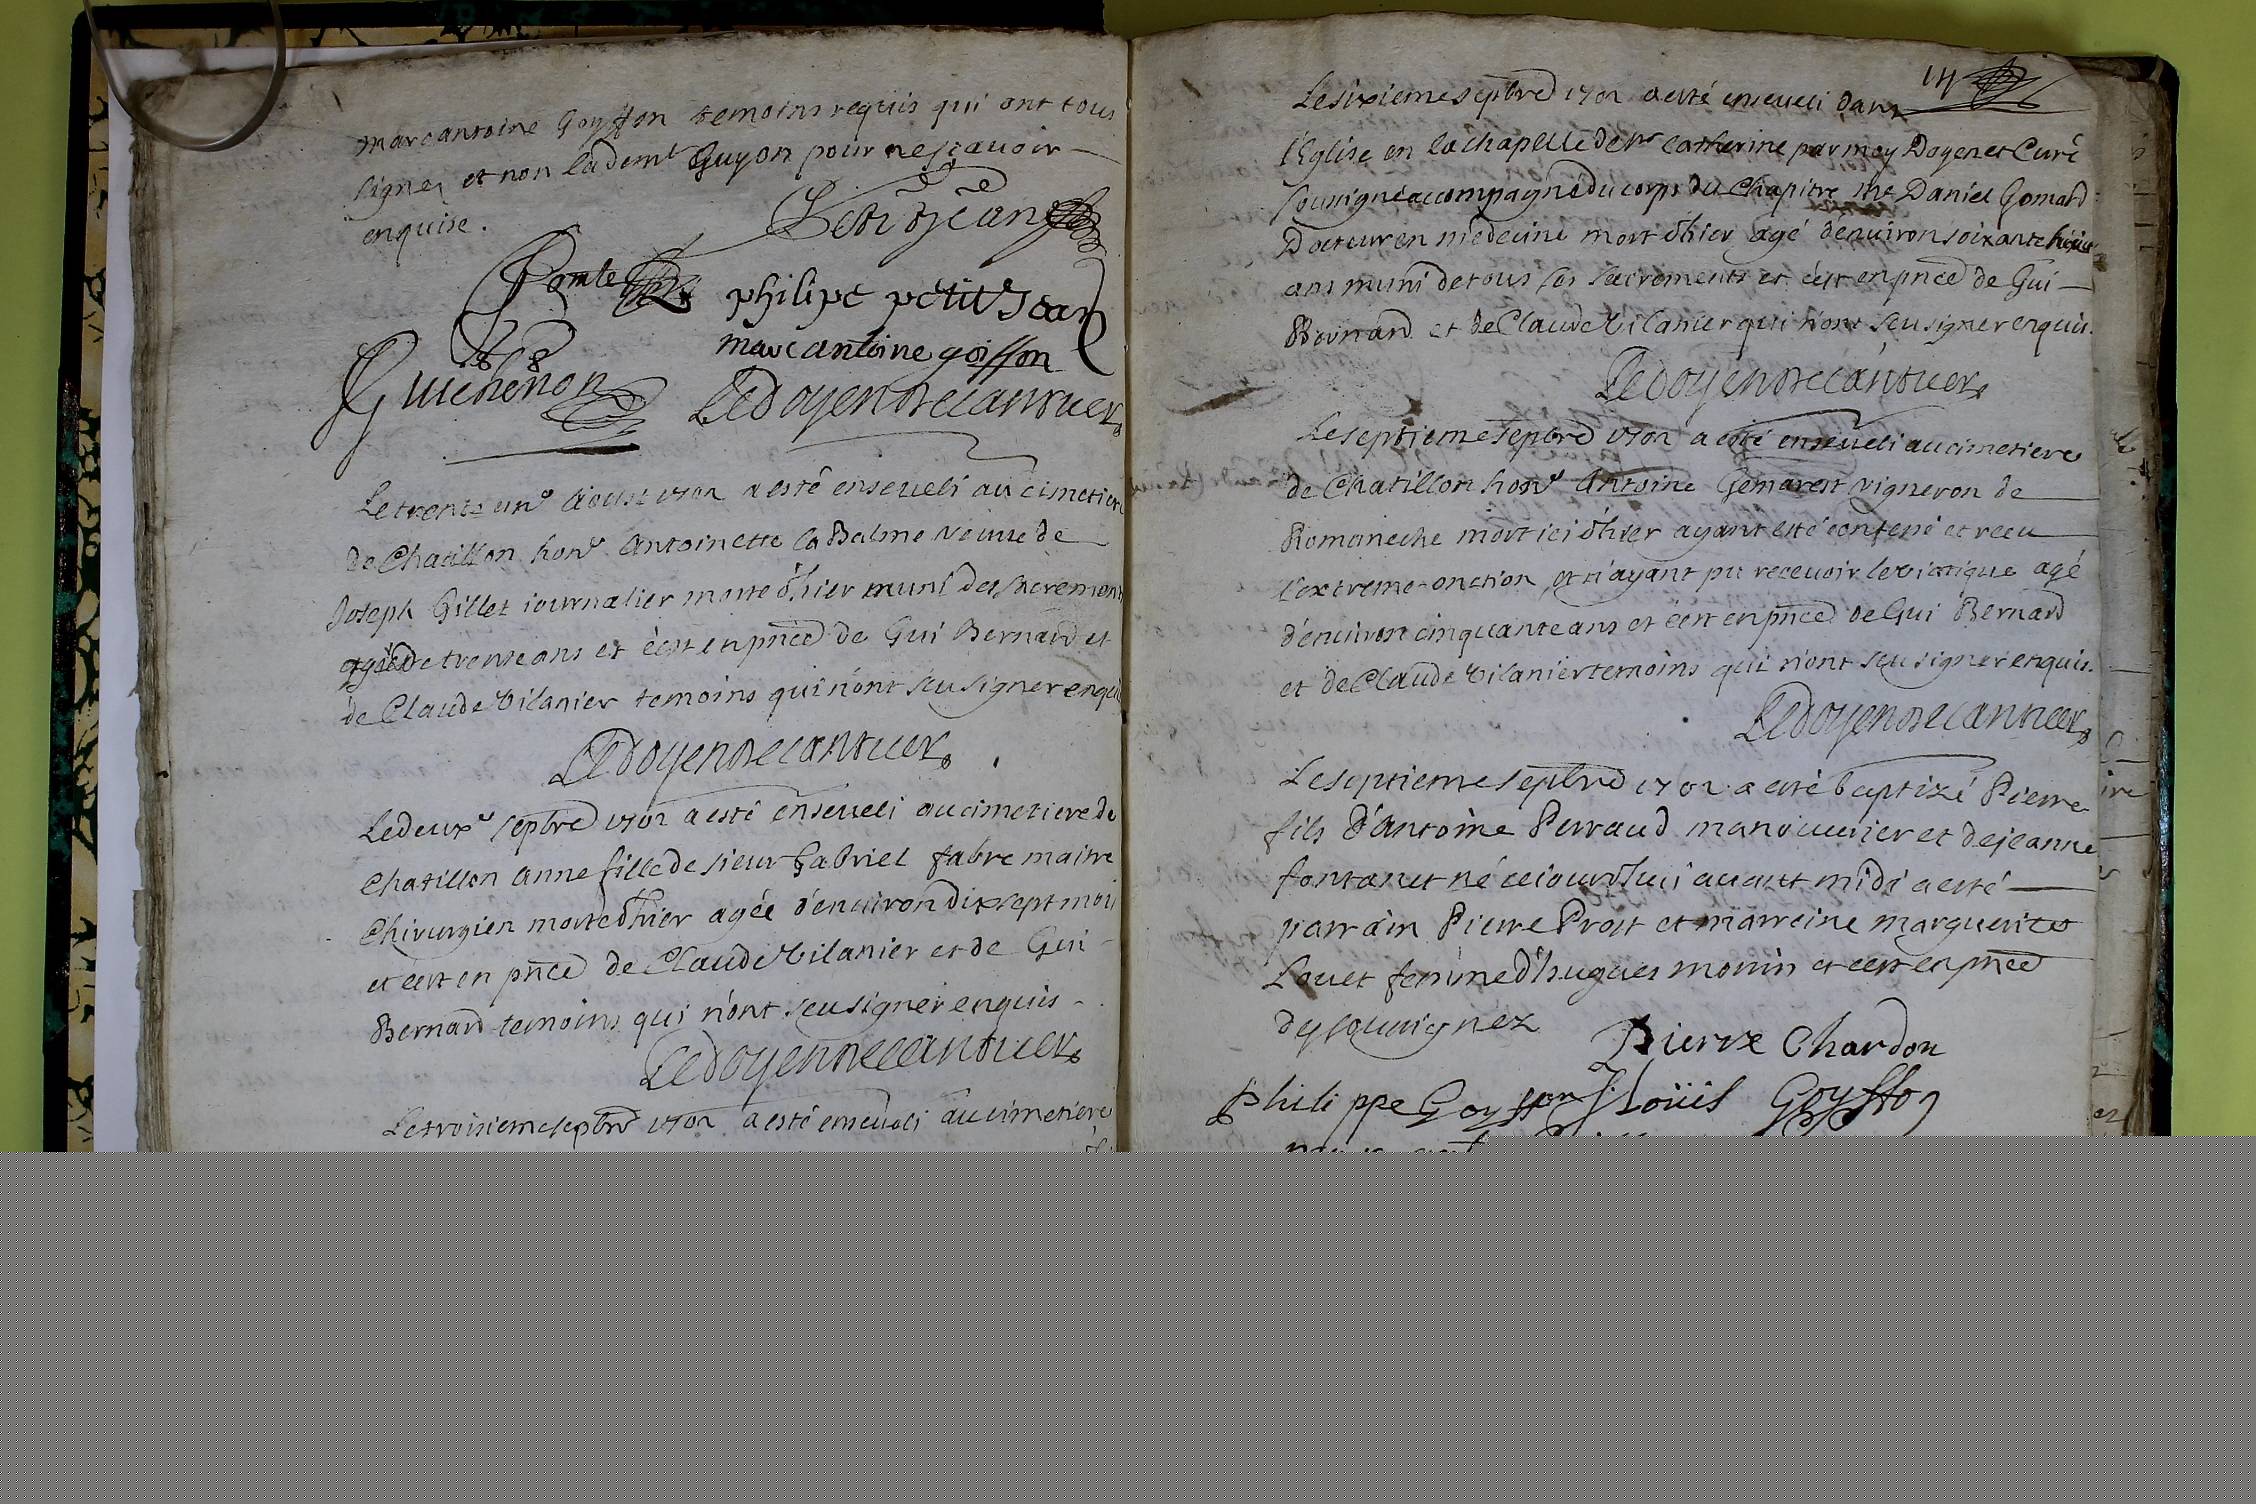 marcantoine Goyffon temoins requis qui ont tous
signez et non ladem.t Guyon pour ne sçavoir
enquise.
Petitjean
Comte
philipe petit Jean
marc antoine goiffon
Guichenon
Le doyen de cantuer
Le trente un.e Aoust 1702 a esté enseveli au cimetiere
de Chatillon hon.e Antoinette la Balme veuve de
Joseph Gillet journalier morte d'hier muni des sacrements
agée de trente ans et c'est en pnce de Gui Bernard et
de Claude Vilanier temoins qui n'ont sçeu signer enquis
Le doyen de cantuer
Le deux.e septbre 1702 a esté enseveli au cimetiere de
Chatillon Anne fille de sieur Gabriel fabre maitre
Chirurgien morte d'hier agée d'environ dix sept mois
et c'est en pnce de Claude Vilanier et de Gui
Bernard temoins qui n'ont sçeu signer enquis
Le doyen de cantuer
Le troisieme septbre 1702 a esté enseveli au cimetiere
14
Le sixieme septbre 1702 a esté enseveli dans
l'Eglise en la chapelle de catherine par moy Doyen et Curé
soussigné accompagné du corps du Chapitre Me Daniel Gomard
Docteur en medecine mort d'hier agé d'environ soixante huit
ans muni de tous ses sacrements et c'est en pnce de Gui
Bernard et de Claude Vilanier qui n'ont sçeu signer enquis.
Le doyen de cantuer
Le septieme septbre 1702 a esté enseveli au cimetiere
de Chatillon hon.e Antoine Gemarest vigneron de
Romaneche mort ici d'hier ayant esté confessé et receu
l'extreme-onction, et n'ayant pu recevoir le viatique agé
d'environ cinquante ans et c'est en pnce de Gui Bernard
et de Claude Vilanier temoins qui n'ont sçeu signer enquis.
Le doyen de cantuer
Le septieme septbre 1702 a esté baptizé Pierre
fils d'antoine Perraud manouvrier et de jeanne
fontanet né cejourd'hui avant midi a esté
parrain Pierre Prost et marreine marguerite
Louet femme d'hugues monin et c'est en pnce
des soussignez
Pierre Chardon
Philippe Goyffon J Loüis Goyffon